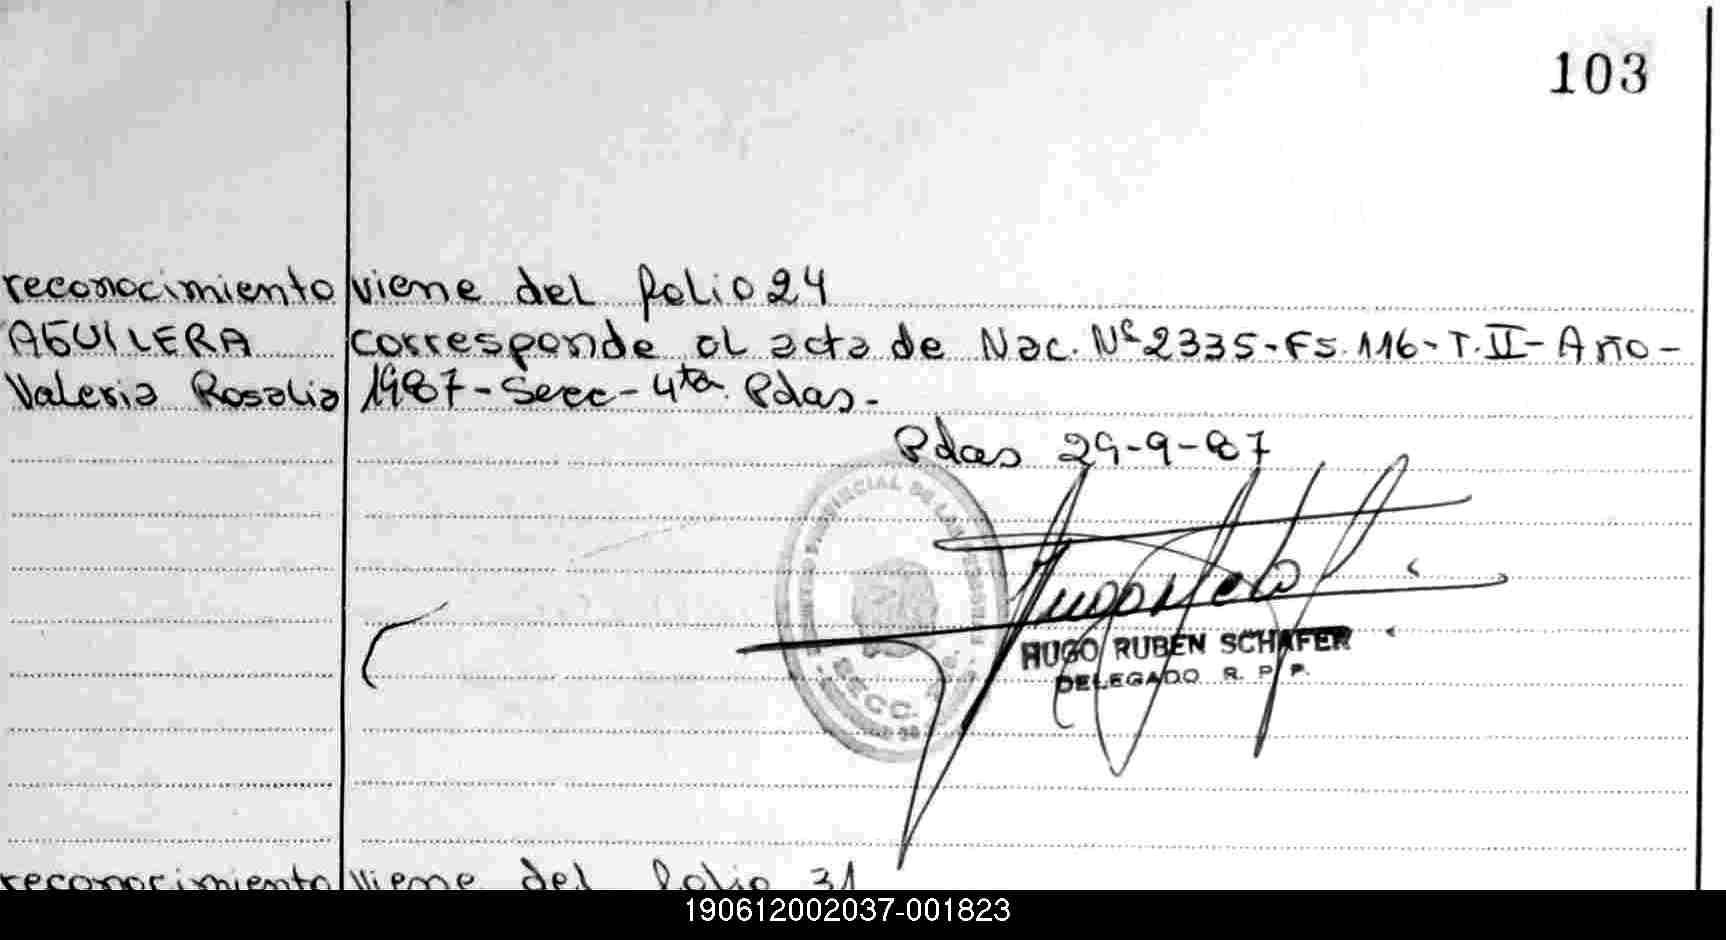 103
reconocimiento viene del folio 24
AGUILERA corresponde al acta de Nac. Nº 2335-Fs. 116-T. II-Año-
Valeria Rosalia 1987-Secc-4ta. Pdas.-
Pdas 29-9-87
PROVINCIAL DE LAS PERSONAS
SECC.
HUGO RUBEN SCHAFER
DELEGADO R. P. P.
reconocimiento viene del folio 31
190612002037-001823